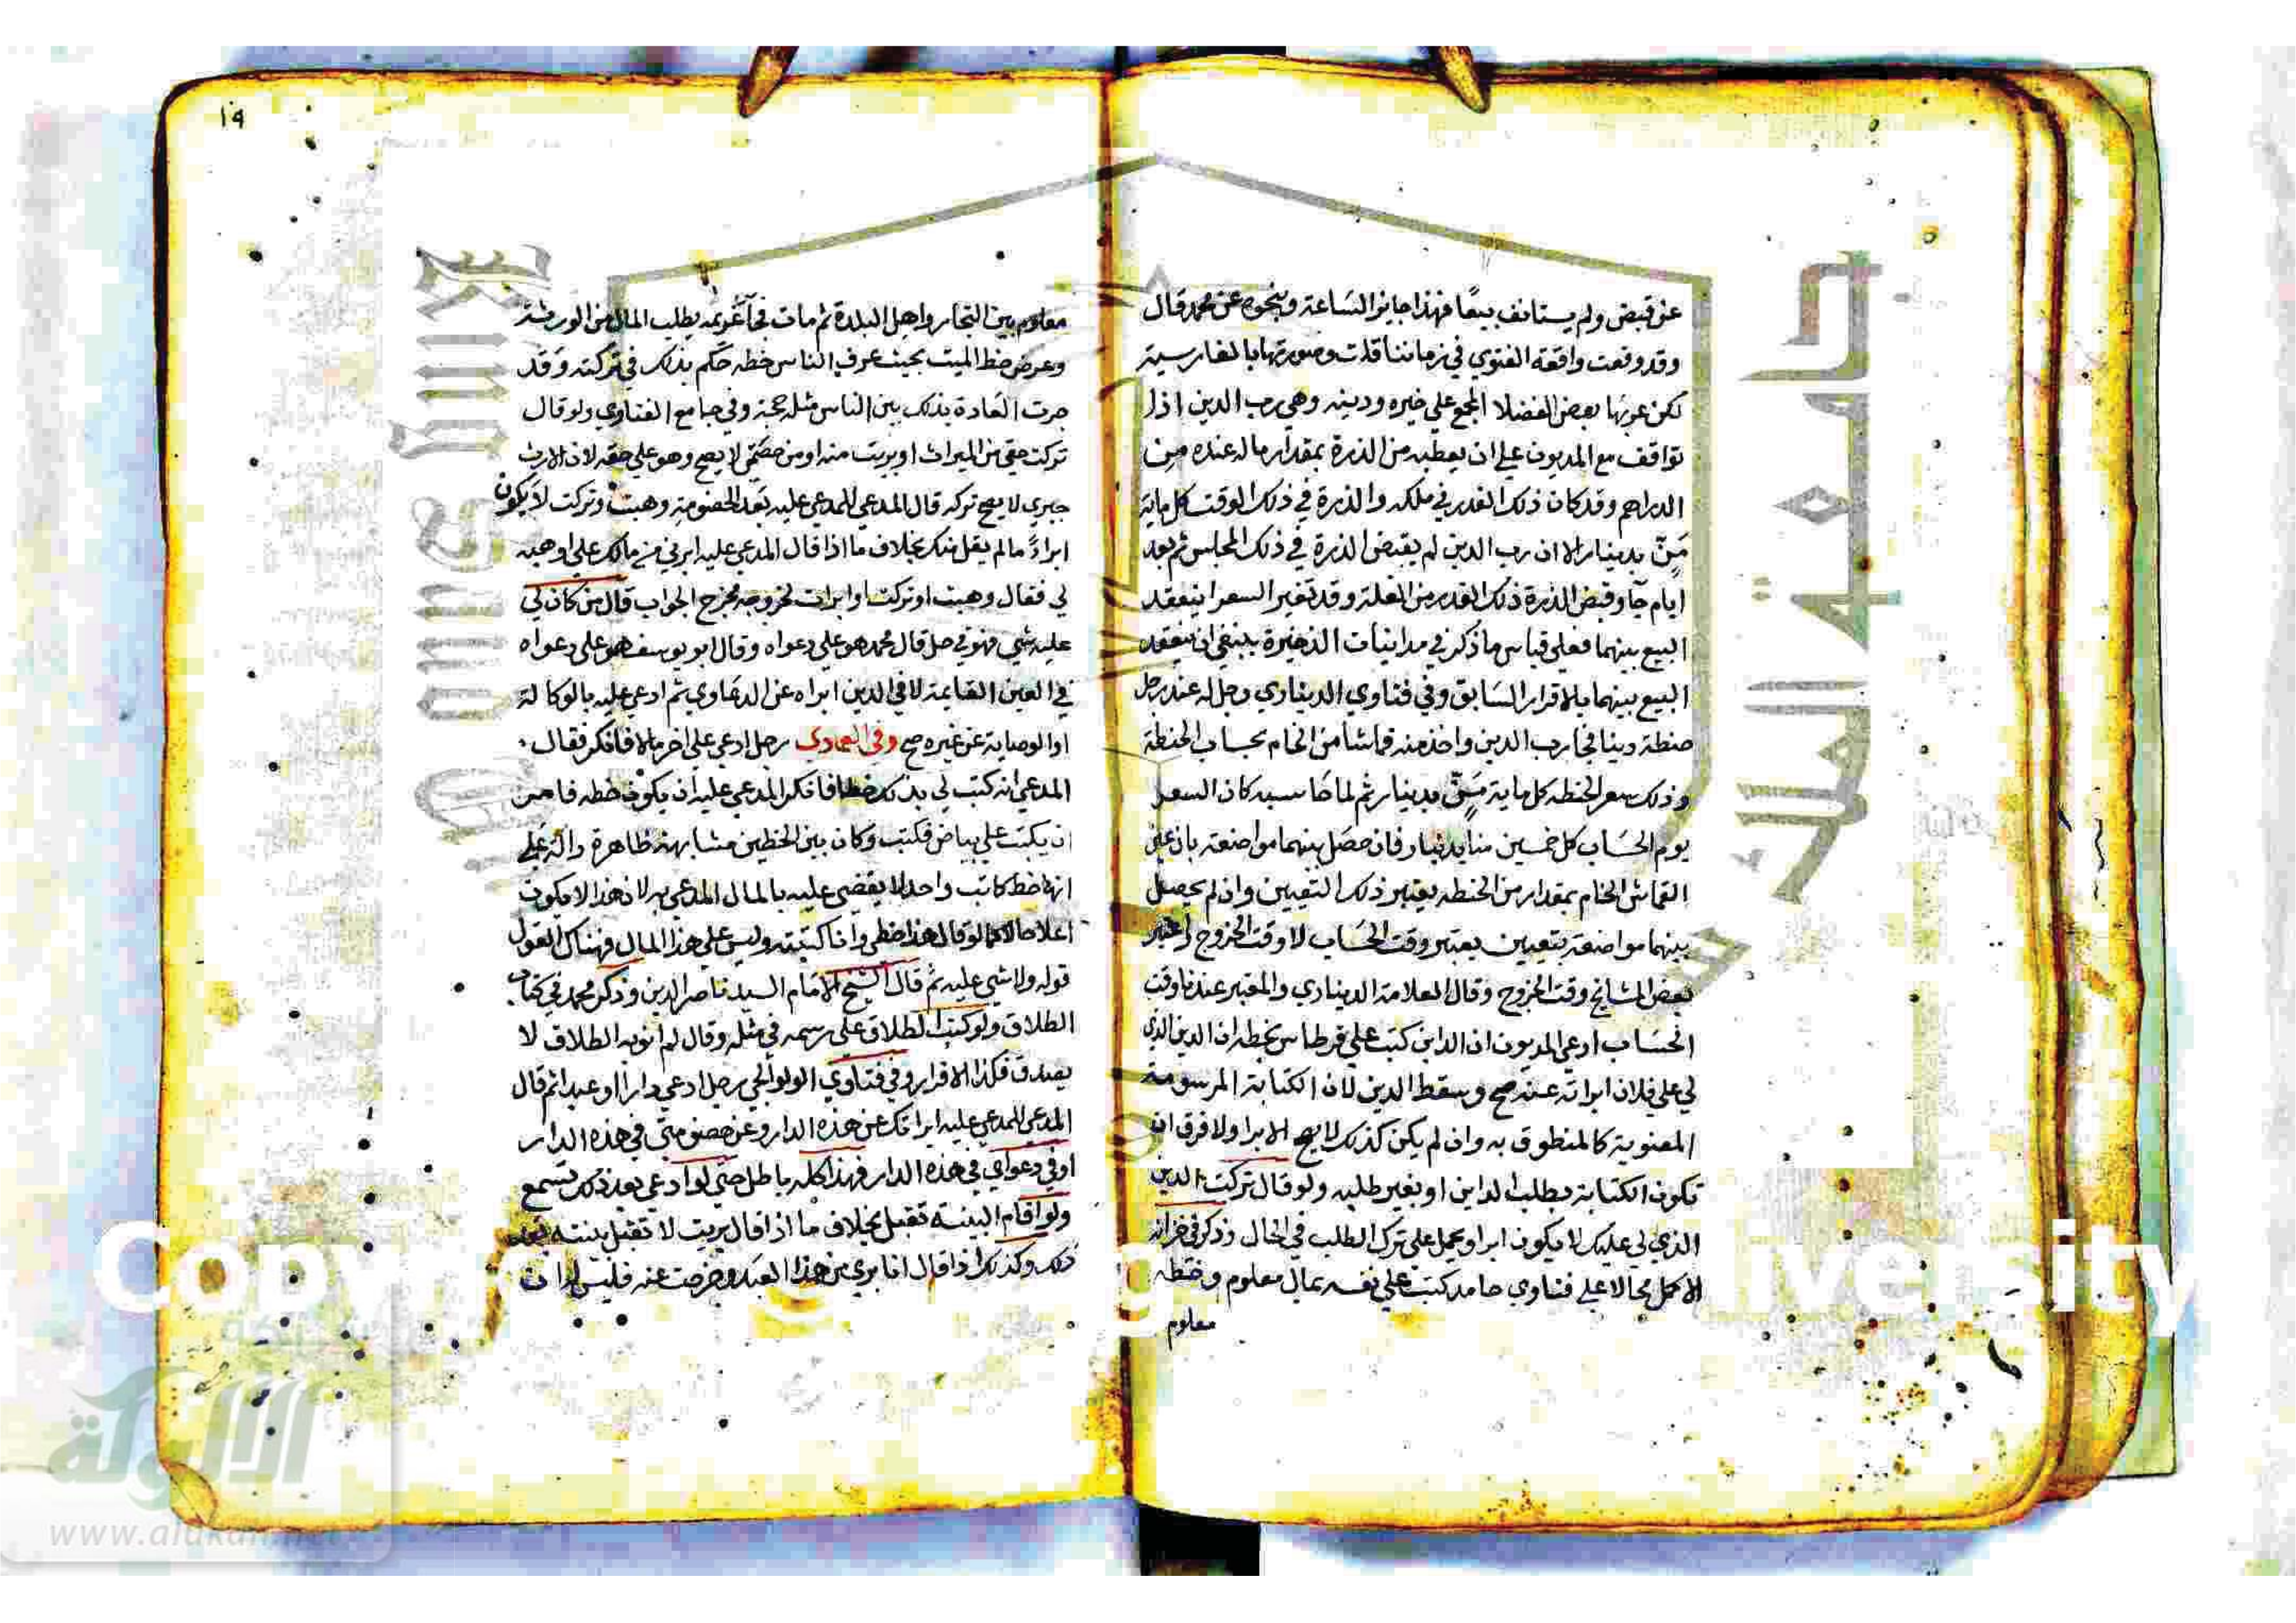 عن قبض ولم يستانف بيعًا فهذا جايز الساعة وبنحوه عن محمد قال
وقد وقعت واقعة الفتوي في زماننا قلت وصورتها بالفارسية
لكن عربها بعض الفضلا المجمع علي خيره ودينه وهي رب الدين اذا
تواقف مع المديون علي ان يعطيه من الذرة بمقدار ماله عنده من
الدراهم وقد كان ذلك القدر في ملكه والذرة في ذلك الوقت كل ماية
منّ بدينار الا ان رب الدين لم يقبض الذرة في ذلك المجلس ثم بعد
ايام جا وقبض الذرة ذلك القدر من الغلة وقد تغير السعر اينعقد
البيع بينهما فعلي قياس ما ذكر في مداينات الذخيرة ينبغي ان ينعقد
البيع بينهما بالاقرار السابق وفي فتاوي الديناري رجل له عند رجل
حنطة دينا فجا رب الدين واخذ منه قماشا من الخام بحساب الحنطة
وذلك سعر الحنطه كل ماية منّ بدينار ثم لما حاسبه كان السعر
يوم الحساب كل خمسين منا بدينار فان حصل بينهما مواضعة بان عين
القماش الخام بمقدار من الحنطه يعتبر ذلك التعيين وان لم يحصل
بينهما مواضعة بتعيين يعتبر وقت الحساب لا وقت الخروج واعتبر
بعض المشايخ وقت الخروج وقال العلامة الديناري والمعتبر عندنا وقت
الحساب ادعي المديون ان الداين كتب علي قرطاس بخطه ان الدين الذي
لي علي فلان ابراته عنه صح وسقط الدين لان الكتابة المرسومة
المعنوية كالمنطوق به وان لم يكن كذلك لا يصح الابرا ولا فرق ان
تكون الكتابة بطلب الداين او بغير طلبه ولو قال تركت الدين
الذي لي عليك لا يكون ابرا ويحمل علي ترك الطلب في الحال وذكر في خزانة
الاكمل محالا علي فتاوي حامد كتب علي نفسه بمال معلوم وخطه
معلوم
١٩
معلوم بين التجار واهل البلدة ثم مات فجا غريمه يطلب المال من الورثة
وعرض خط الميت بحيث عرف الناس خطه حكم بذلك في تركته وقد
جرت العادة بذلك بين الناس مثله حجة وفي جامع الفتاوي ولو قال
تركت حقي من الميراث او بريت منه او من حصتي لا يصح وهو علي حقه لان الارث
جبري لا يصح تركه قال المدعي للمدعي عليه بعد الخصومة وهبت وتركت لا يكون
ابراءً ما لم يقل منك بخلاف ما اذا قال المدعي عليه ابرني من مالك علي او هبه
لي فقال وهبت او تركت او ابرات لخروجه مخرج الجواب قال من كان لي
عليه شي فهو في حل قال محمد هو علي دعواه وقال ابو يوسف هو علي دعواه
في العين القايمة لا في الدين ابراه عن الدعاوي ثم ادعي عليه بالوكالة
او الوصاية عن غيره صح وفي العمادي رجل ادعي علي اخر مالا فانكر فقال
المدعي انه كتب لي بذلك خطا فانكر المدعي عليه ان يكون خطه فامر
ان يكتب علي بياض فكتب وكان بين الخطين مشابهة ظاهرة دالة علي
انها خط كاتب واحد لا يقضي عليه بالمال المدعي به لان هذا لا يكون
اعلا حالا كما لو قال هذا خطي وانا كتبته وليس علي هذا المال فهناك القول
قوله ولا شي عليه ثم قال الشيخ الامام السيد ناصر الدين وذكر محمد في كتاب
الطلاق ولو كتب الطلاق علي رسمه في مثله وقال لم انو به الطلاق لا
يصدق فكذا الاقرار وفي فتاوي الولوالجي رجل ادعي دارا او عبدا ثم قال
المدعي للمدعي عليه ابراتك عن هذه الدار وعن خصومتي في هذه الدار
او في دعواي في هذه الدار فهذا كله باطل حتي لو ادعي بعد ذلك تسمع
ولو اقام البينة تقبل بخلاف ما اذا قال بريت لا تقبل بينته بعد
ذلك وكذلك اذا قال انا بري من هذا العبد وخرجت عنه فليس له ان
جامعة الملك سعود
Copy
iversity
الألوكة
www.alukah.net